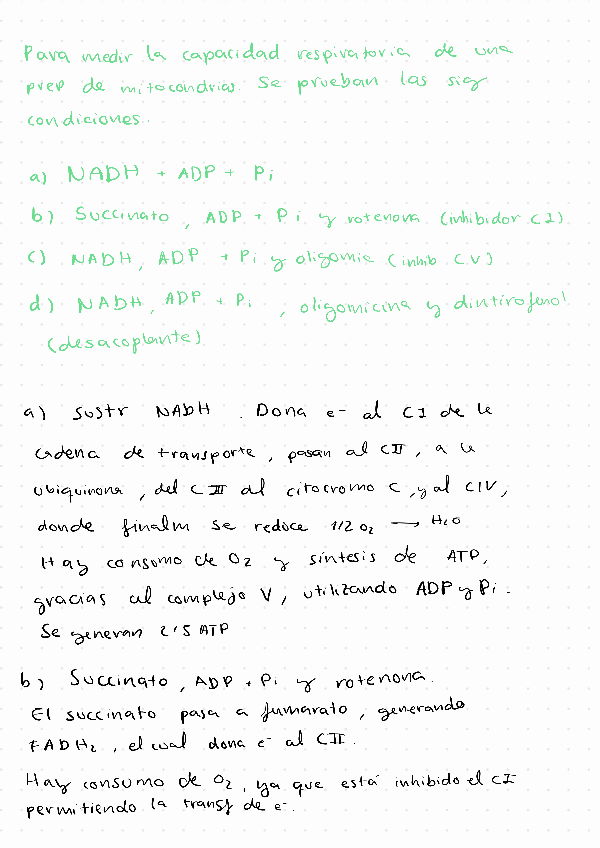 Para medir la capacidad respiratoria de una
prep de mitocondrias. Se prueban las sig
condiciones.
a) NADH + ADP + Pi
b) Succinato, ADP + Pi y rotenona (inhibidor CI)
c) NADH, ADP + Pi y oligomic (inhib CV)
d) NADH, ADP + Pi, oligomicina y dintirofenol
(desacoplante)
a) sustr NADH. Dona e- al CI de la
cadena de transporte, pasan al CII, a la
ubiquinona, del CIII al citocromo C, y al CIV,
donde finalm se reduce 1/2 O2 → H2O
Hay consumo de O2 y síntesis de ATP,
gracias al complejo V, utilizando ADP y Pi.
Se generan 2'5 ATP
b) Succinato, ADP + Pi y rotenona.
El succinato pasa a fumarato, generando
FADH2, el cual dona e- al CII.
Hay consumo de O2, ya que está inhibido el CI
permitiendo la transf de e-.